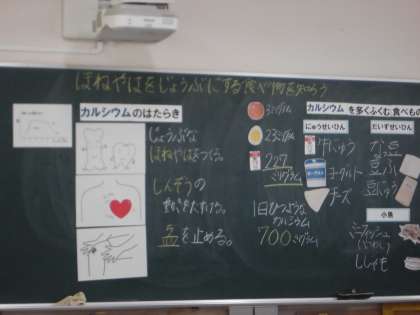 ほねやはをじょうぶにする食べ物を知ろう
カルシウムのはたらき
じょうぶな
ほねやはをつくる。
しんぞうの
動きをたすける。
血を止める。
3ミリグラム
23ミリグラム
227
ミリグラム
1日ひつような
カルシウム
700ミリグラム
カルシウムを多くふくむ食べもの
にゅうせいひん
牛にゅう
ヨーグルト
チーズ
だいずせいひん
豆ふ
豆にゅう
小魚
ししゃも